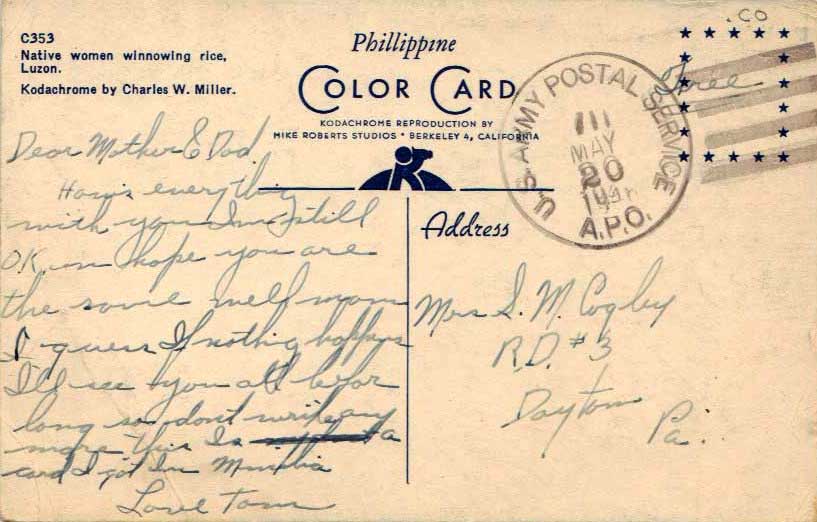 C353
Native women winnowing rice,
Luzon.
Kodachrome by Charles W. Miller.
Phillippine
COLOR CARD
KODACHROME REPRODUCTION BY
MIKE ROBERTS STUDIOS * BERKELEY 4, CALIFORNIA
.CO
Free
U.S. ARMY POSTAL SERVICE
MAY
20
A.P.O.
Dear Mother & Dad.
Hows everything
with you Im still
O.K. an hope you are
the same well mom
I guess If nothing happens
I'll see you all befor
long so dont write any
more this Is a
card I got In Manilia
Love Tom
Address
Mrs S. M. Cogley
R.D. #3
Dayton
Pa.